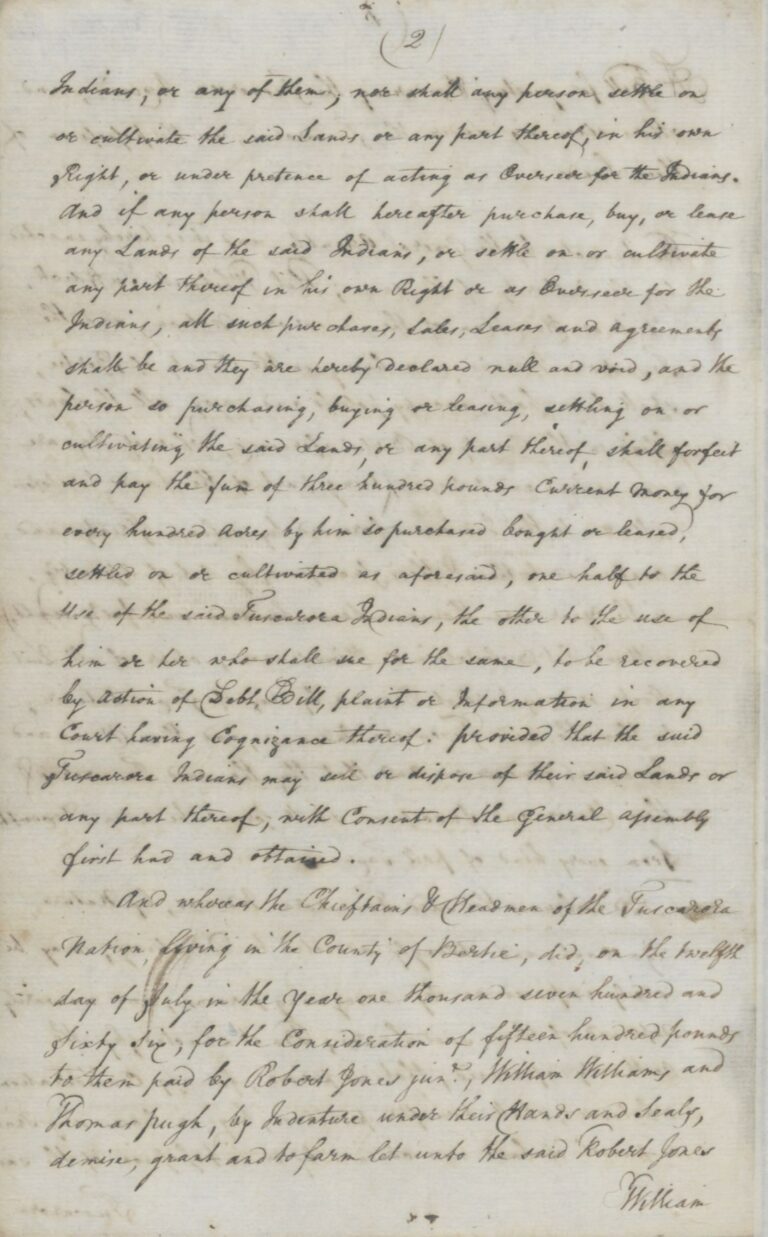 (2)
Indians, or any of them, nor shall any person settle on
or cultivate the said Lands or any part thereof, in his own
Right, or under pretence of acting as Overseer for the Indians.
And if any person shall hereafter purchase, buy, or lease
any Lands of the said Indians, or settle on or cultivate
any part thereof in his own Right or as Overseer for the
Indians, all such purchases, Sales, Leases and agreements
shall be and they are hereby Declared null and void, and the
person so purchasing, buying or leasing, settling on or
cultivating the said Lands, or any part thereof, shall forfeit
and pay the sum of three hundred pounds Current Money for
every hundred Acres by him so purchased bought or leased,
settled on or cultivated as aforesaid, one half to the
Use of the said Tuscarora Indians, the other to the use of
him or her who shall sue for the same, to be recovered
by Action of Debt, Bill, plaint or Information in any
Court having Cognizance thereof: provided that the said
Tuscarora Indians may sell or dispose of their said Lands or
any part thereof, with Consent of the General Assembly
first had and obtained.
And whereas the Chieftains & Headmen of the Tuscarora
Nation, living in the County of Bertie, did, on the twelfth
day of July in the Year one thousand seven hundred and
Sixty Six, for the Consideration of fifteen hundred pounds
to them paid by Robert Jones junr., William Williams and
Thomas Pugh, by Indenture under their Hands and Seals,
demise, grant and to farm let unto the said Robert Jones
William